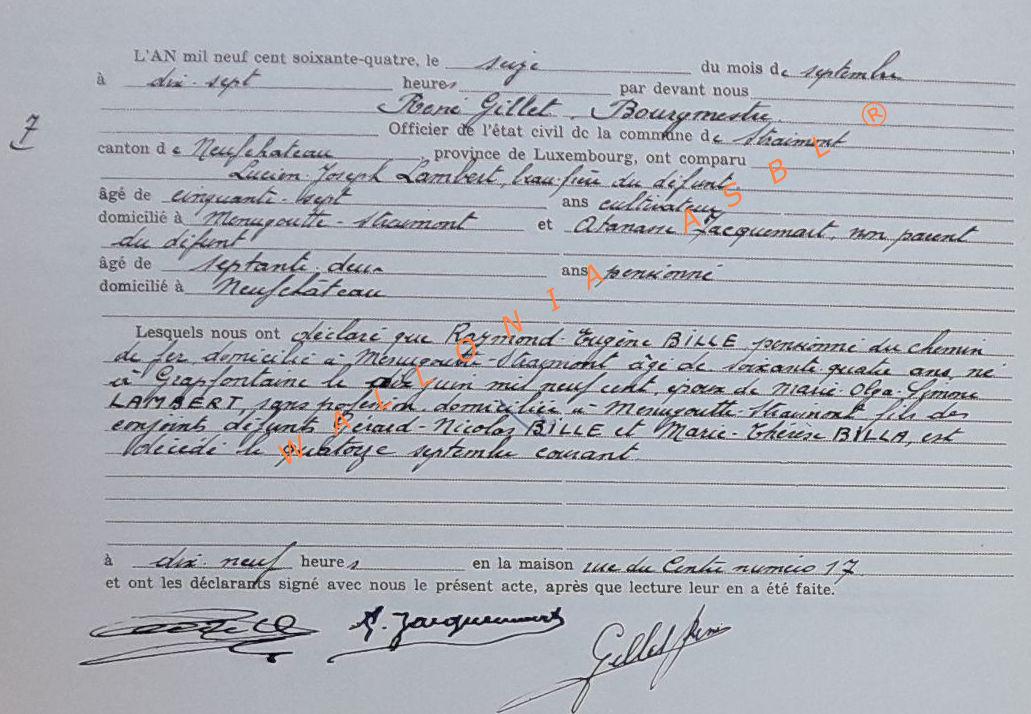 L'AN mil neuf cent soixante-quatre, le seize du mois de septembre
à dix-sept heures par devant nous
René Gillet, Bourgmestre
7
Officier de l'état civil de la commune de Straimont
canton de Neufchateau province de Luxembourg, ont comparu
Lucien Joseph Lambert, beau-frère du défunt,
âgé de cinquante-sept ans cultivateur
domicilié à Menugoutte-Straimont et Atanase Jacquemart, non parent
du défunt
âgé de septante-deux ans pensionné
domicilié à Neufchâteau
Lesquels nous ont déclaré que Raymond-Eugène BILLE, pensionné du chemin
de fer domicilié à Menugoutte-Straimont âgé de soixante quatre ans, né
à Grapfontaine le dix juin mil neuf cent, époux de Marie-Olga-Simone
LAMBERT, sans profession, domiciliée à Menugoutte-Straimont fils des
conjoints défunts Gérard-Nicolas BILLE et Marie-Thérèse BILLA, est
décédé le quatorze septembre courant
à dix-neuf heures en la maison rue du Centre numéro 17
et ont les déclarants signé avec nous le présent acte, après que lecture leur en a été faite.
A. Jacquemart
Gillet René
WALLONIA ASBL ®